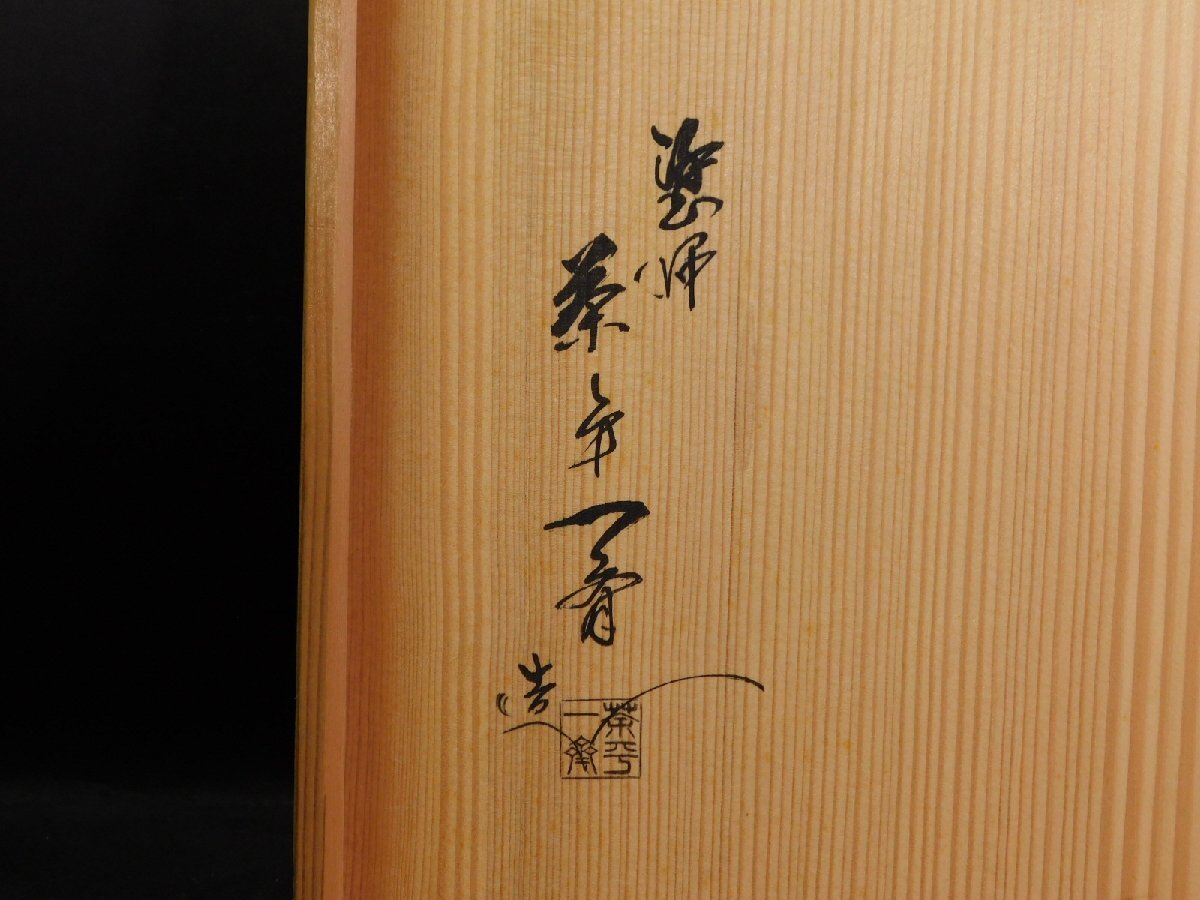 塗師
茶平一斎
造
茶平
一斎